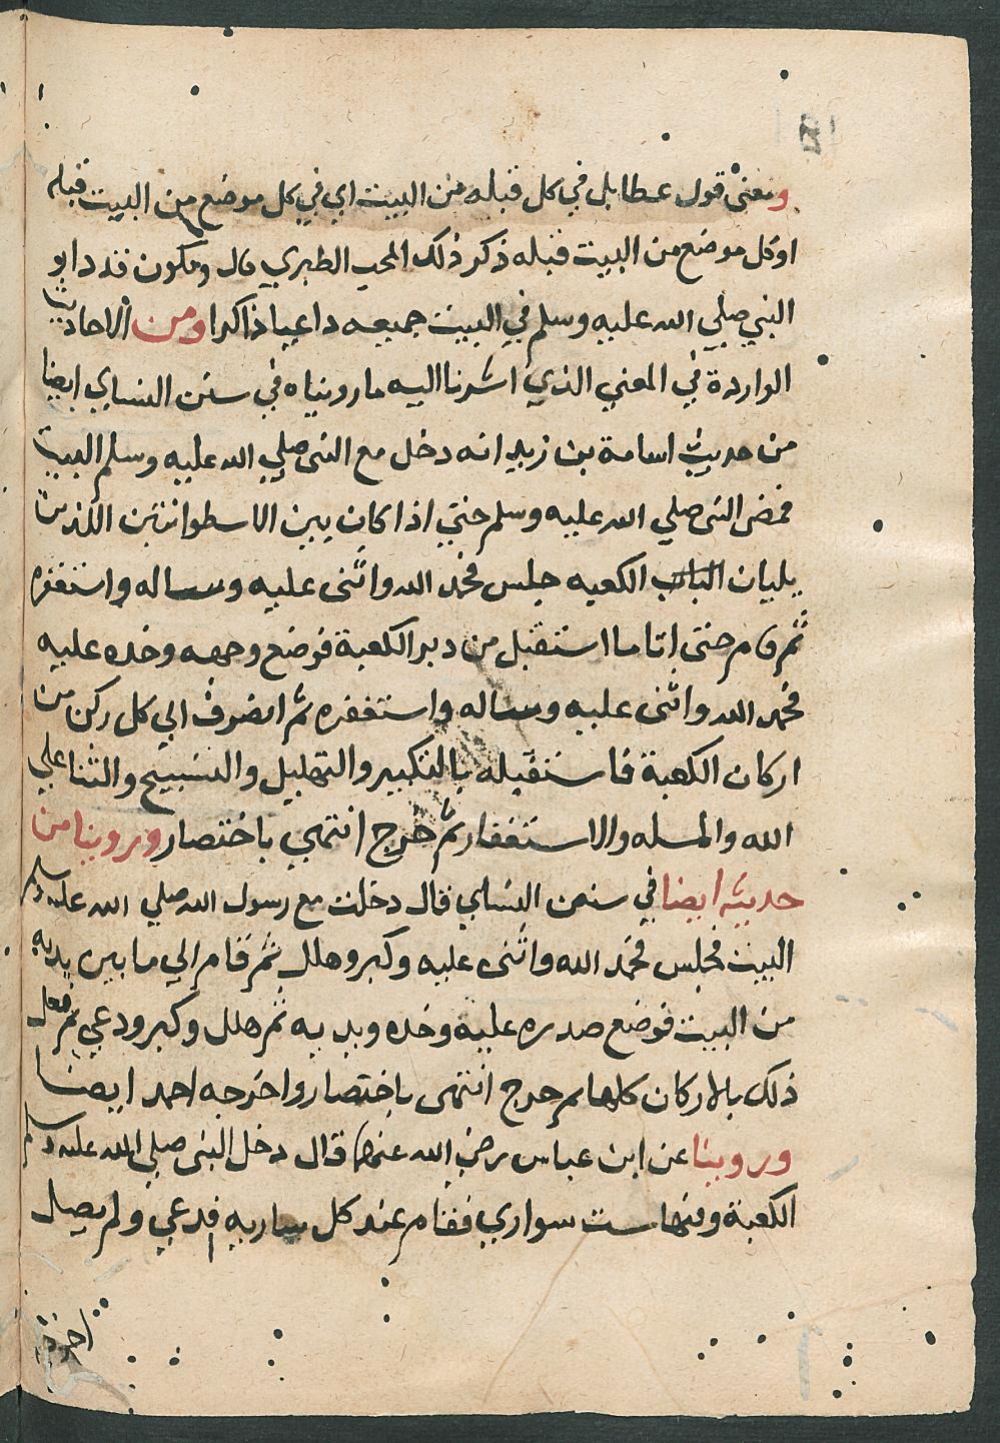 ومعنى قول عطا بل في كل قبله من البيت اي في كل موضع من البيت قبله
او كل موضع من البيت قبله ذكر ذلك المحب الطبري قال ويكون قد دار
النبي صلي الله عليه وسلم في البيت جميعه داعيا ذاكرا ومن الاحاديث
الواردة في المعني الذي اشرنا اليه ما رويناه في سنن النساي ايضا
من حديث اسامة بن زيد انه دخل مع النبي صلي الله عليه وسلم البيت
فمضى النبي صلي الله عليه وسلم حتي اذا كان بين الاسطوانتين اللذين
يليان الباب الكعبه جلس فحمد الله واثنى عليه وساله واستغفره
ثم قام حتى اتا ما استقبل من دبر الكعبة فوضع وجهه وخده عليه
فحمد الله واثنى عليه وساله واستغفره ثم انصرف الي كل ركن من
اركان الكعبة فاستقبله بالتكبير والتهليل والتسبيح والثنا علي
الله والمسله والاستغفار ثم خرج انتهي باختصار وروينا من
حديثه ايضا في سنن النساي قال دخلت مع رسول الله صلي الله عليه وسلم
البيت فجلس فحمد الله واثنى عليه وكبر وهلل ثم قام الي ما بين يديه
من البيت فوضع صدره عليه وخده ويديه ثم هلل وكبر ودعي ثم فعل
ذلك بالاركان كلها ثم خرج انتهى باختصار واخرجه احمد ايضا
وروينا عن ابن عباس رضي الله عنهما قال دخل النبي صلي الله عليه وسلم
الكعبة وفيها ست سواري فقام عند كل ساريه فدعي ولم يصل